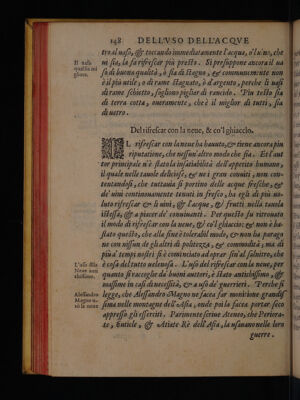 148 DELL'VSO DELL'ACQVE
tro al naso, & toccando immediatamente l'acque, ò'l uino, che
ui sia, la fa rifrescar più presto. Si presuppone ancora il ua
so di buona qualità, ò sia di stagno, & communemente non
è il più utile, o di rame stagnato, ò d'argento, perche li uasi
di rame schietto, sogliono pigliar di rancido. Più tosto sia
di terra cotta, oueramente, che è il miglior di tutti, sia
di uetro.
Il uaso
quasi sia mi
gliore.
Del rifrescar con la neue, & co'l ghiaccio.
IL rifrescar con la neue ha hauuto, & tiene ancora piu
riputatione, che nessun'altro modo che sia. Et l'aut
tor principale n'è stata la insatiabiltà dell'appetito humano,
il quale nelle tauole delicose, & ne i gran conuiti, non con
tentandosi, che tuttauia si portino delle acque fresche, &
de' uini continouamente tenuti in fresco, ha egli di più uo-
luto rifrescar & li uini, & l'acque, & frutti nella tauola
istessa, & a piacer de' conuinanti. Per questo fu ritrouato
il modo di rifrescar con la neue, & co'l ghiaccio: & non è ba-
stato questo, che alla fine è tolerabil modo, & non ha parago
ne con nissun de gli altri di politezza, & commodità, ma di
più a' tempi nostri si è cominciato ad oprar sin'al salnitro, che
è cosa del tutto uelenosa. L'uso del rifrescar con la neue, per
quanto si raccoglie da' buoni auttori, è stato antichissimo, &
massime in casi di necessità, & a uso de' guerrieri. Perche si
legge, che Alessandro Magno ne facea far monitione grandis
sima nelle montagne dell'Asia, onde poi la facea portar seco
appresso gli esserciti. Parimente scriue Ateneo, che Periora-
to, Enticle, & Attiato Re dell'Asia, la usauano nelle loro
guerre.
L'uso della
Neue anti
chissimo.
Alessandro
Magno u-
sò la neue